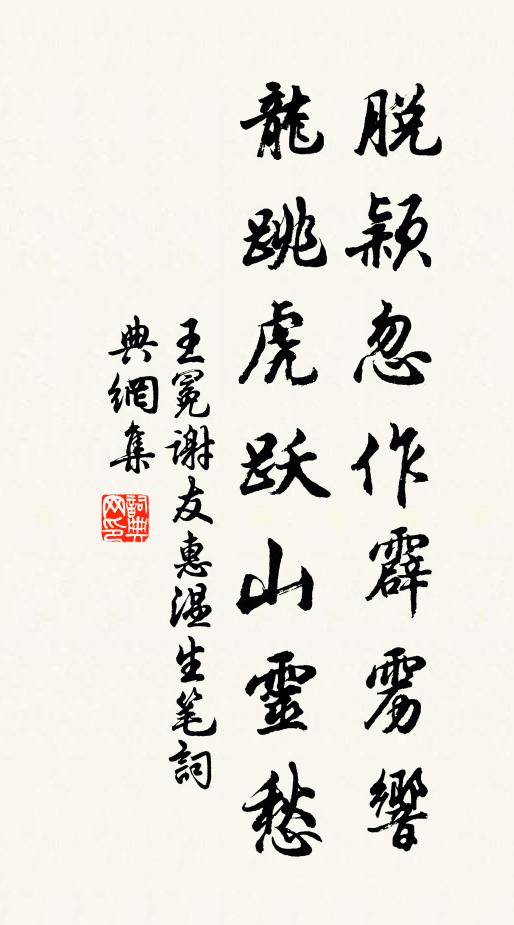 脱颖忽作霹雳響
龍跳虎跃山靈愁
王冕谢友惠温生笔詞
典網集
詞典网印